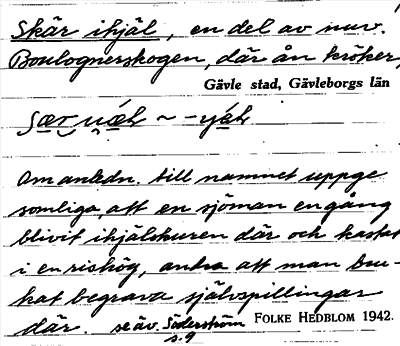 Skär ihjäl, en del av nuv.
Boulognerskogen, där ån kröker,
Gävle stad, Gävleborgs län
Om anledn. till namnet uppge
somliga, att en sjöman en gång
blivit ihjälskuren där och kastat
i en rishög, andra att man bru-
kat begrava självspillingar
där. se äv. Söderström FOLKE HEDBLOM 1942.
s. 9